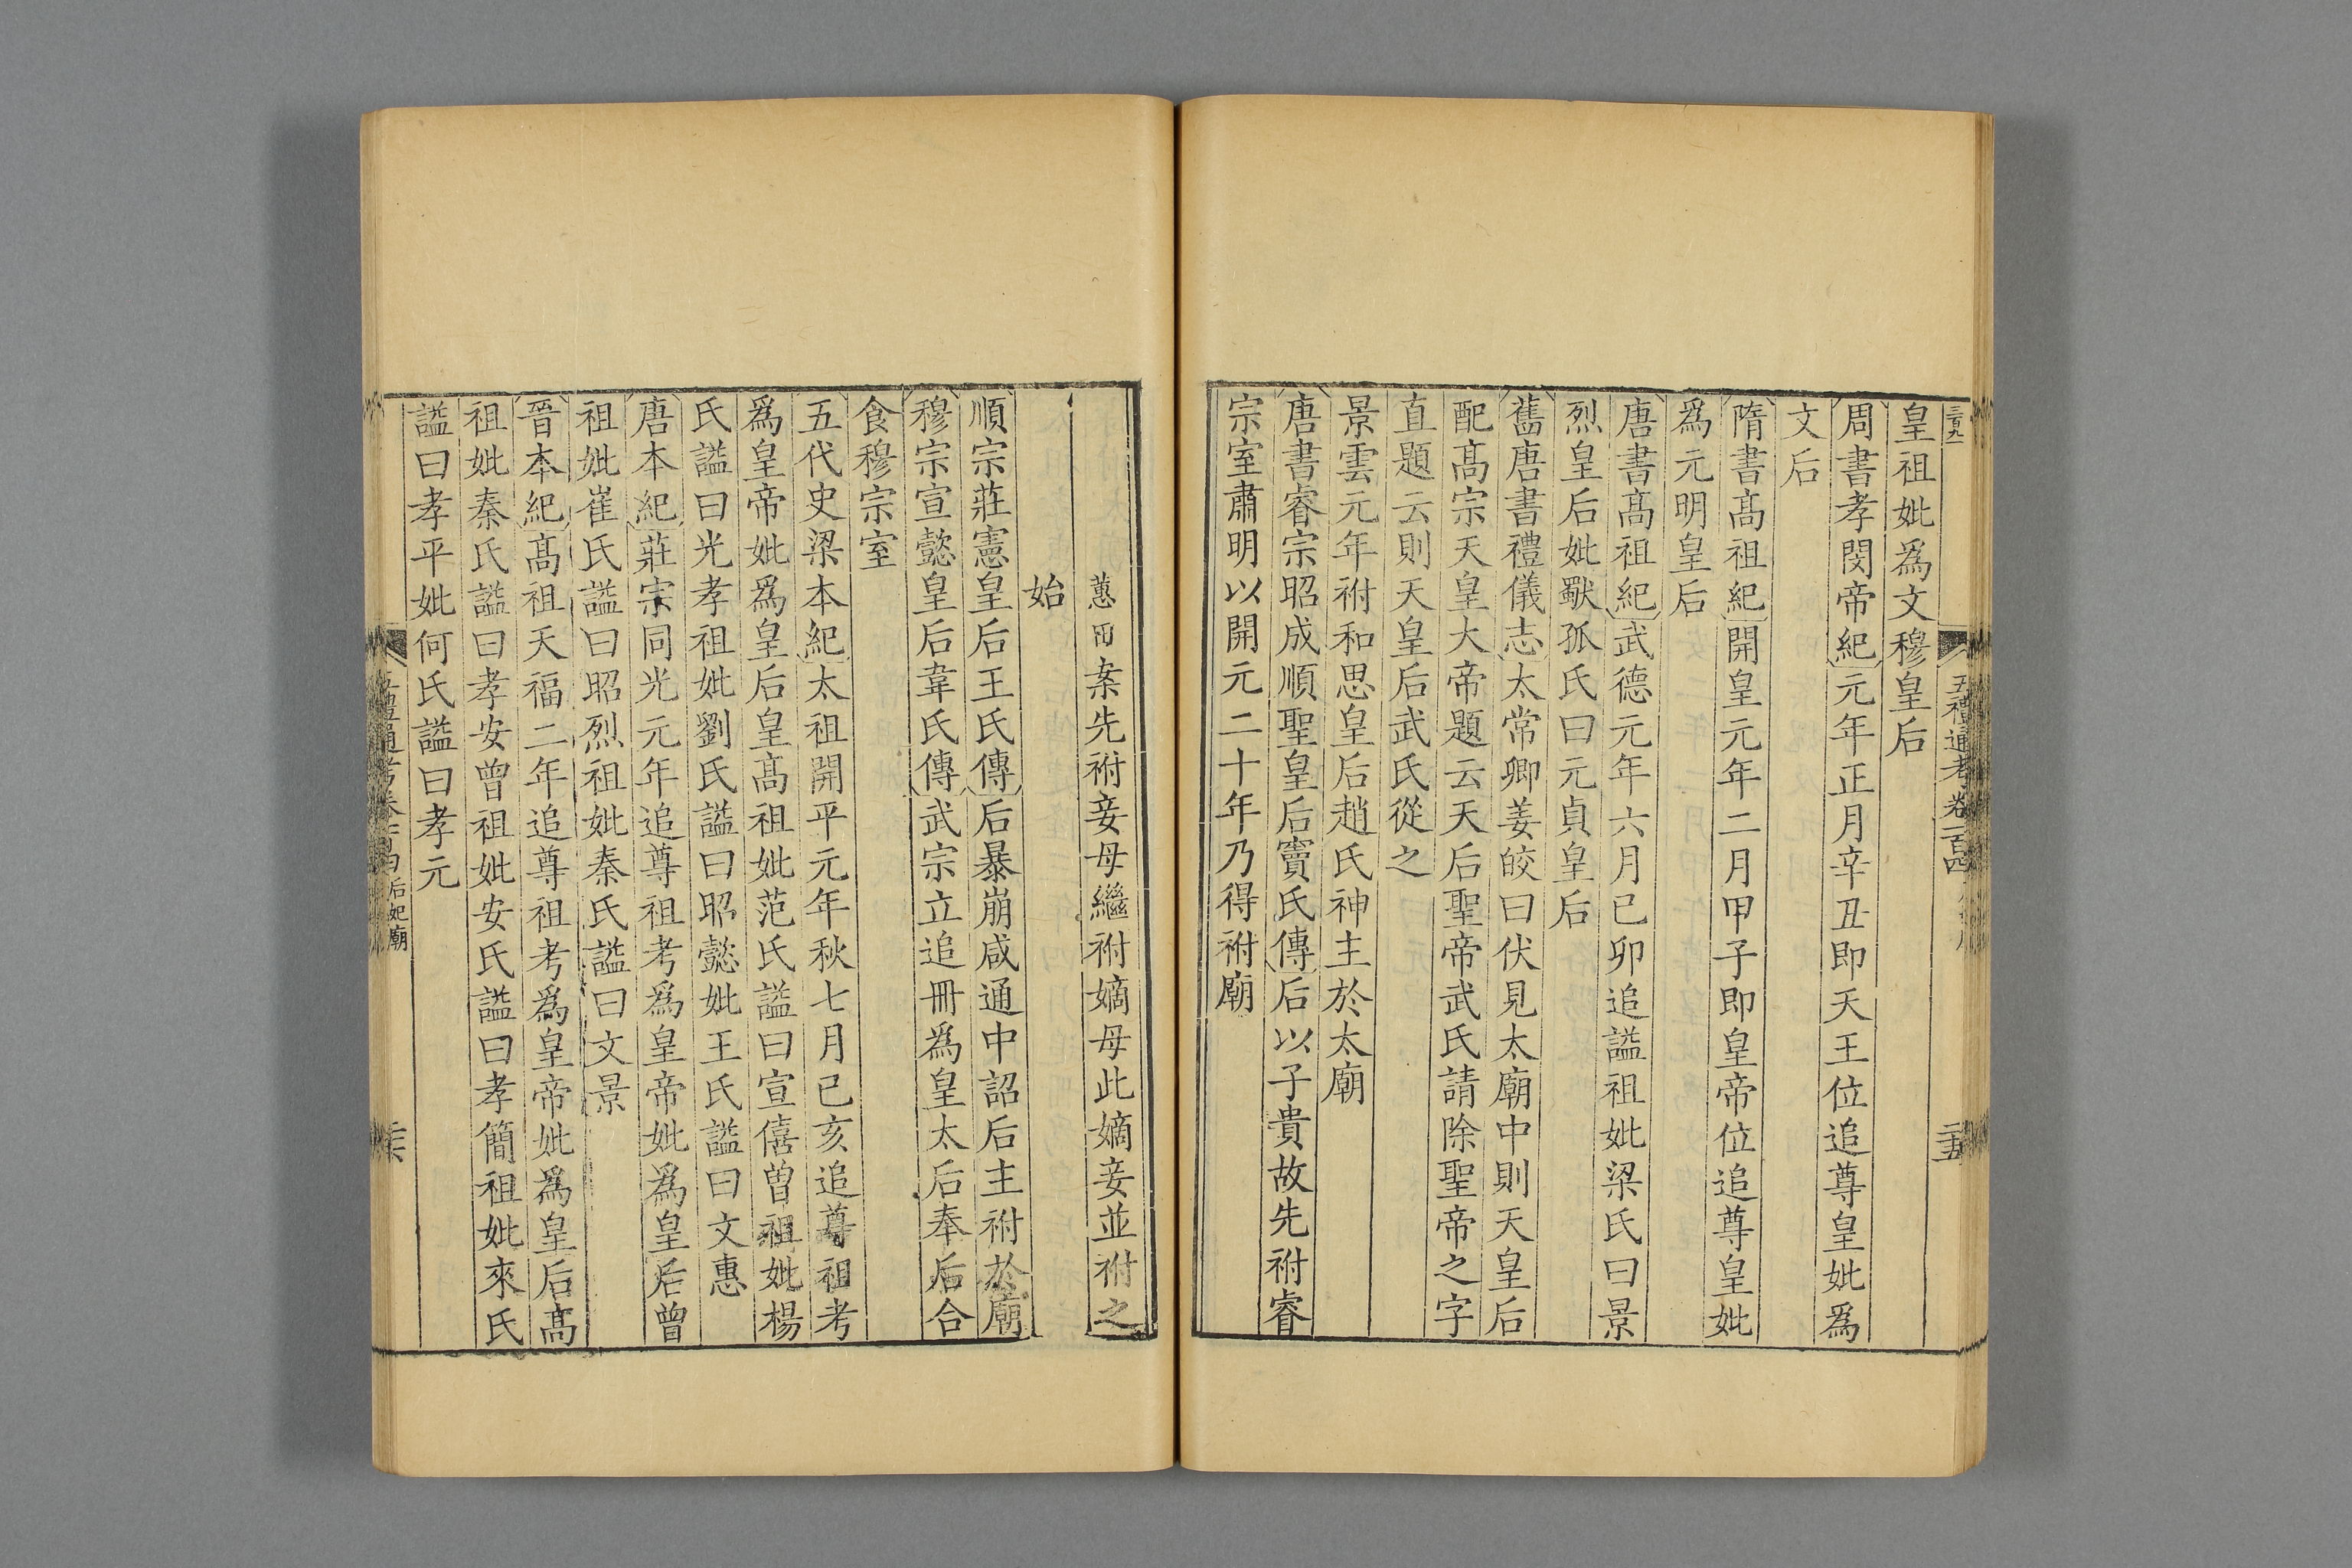 三百九
五禮通考卷一百四
二五
皇祖妣爲文穆皇后
周書孝閔帝紀元年正月辛丑即天王位追尊皇妣爲
文后
隋書髙祖紀開皇元年二月甲子即皇帝位追尊皇妣
爲元明皇后
唐書髙祖紀武德元年六月已卯追謚祖妣梁氏曰景
烈皇后妣獨孤氏曰元貞皇后
舊唐書禮儀志太常卿姜皎曰伏見太廟中則天皇后
配髙宗天皇大帝題云天后聖帝武氏請除聖帝之字
直題云則天皇后武氏從之
景雲元年祔和思皇后趙氏神主於太廟
唐書睿宗昭成順聖皇后竇氏傳后以子貴故先祔睿
宗室肅明以開元二十年乃得祔廟
蕙田案先祔妾母繼祔嫡母此嫡妾並祔之
始
順宗莊憲皇后王氏傳后暴崩咸通中詔后主祔於廟
穆宗宣懿皇后韋氏傳武宗立追冊爲皇太后奉后合
食穆宗室
五代史梁本紀太祖開平元年秋七月已亥追尊祖考
爲皇帝妣爲皇后皇髙祖妣范氏謚曰宣僖曾祖妣楊
氏謚曰光孝祖妣劉氏謚曰昭懿妣王氏謚曰文惠
唐本紀莊宗同光元年追尊祖考爲皇帝妣爲皇后曾
祖妣崔氏謚曰昭烈祖妣秦氏謚曰文景
晉本紀髙祖天福二年追尊祖考爲皇帝妣爲皇后髙
祖妣秦氏謚曰孝安曾祖妣安氏謚曰孝簡祖妣來氏
謚曰孝平妣何氏謚曰孝元
禮通考 后妃廟